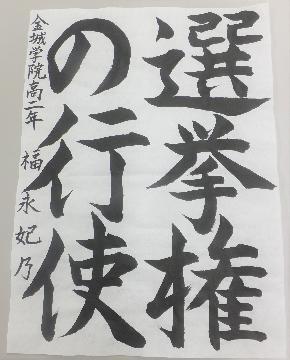 選挙権
の行使
金城学院高二年 福永妃乃